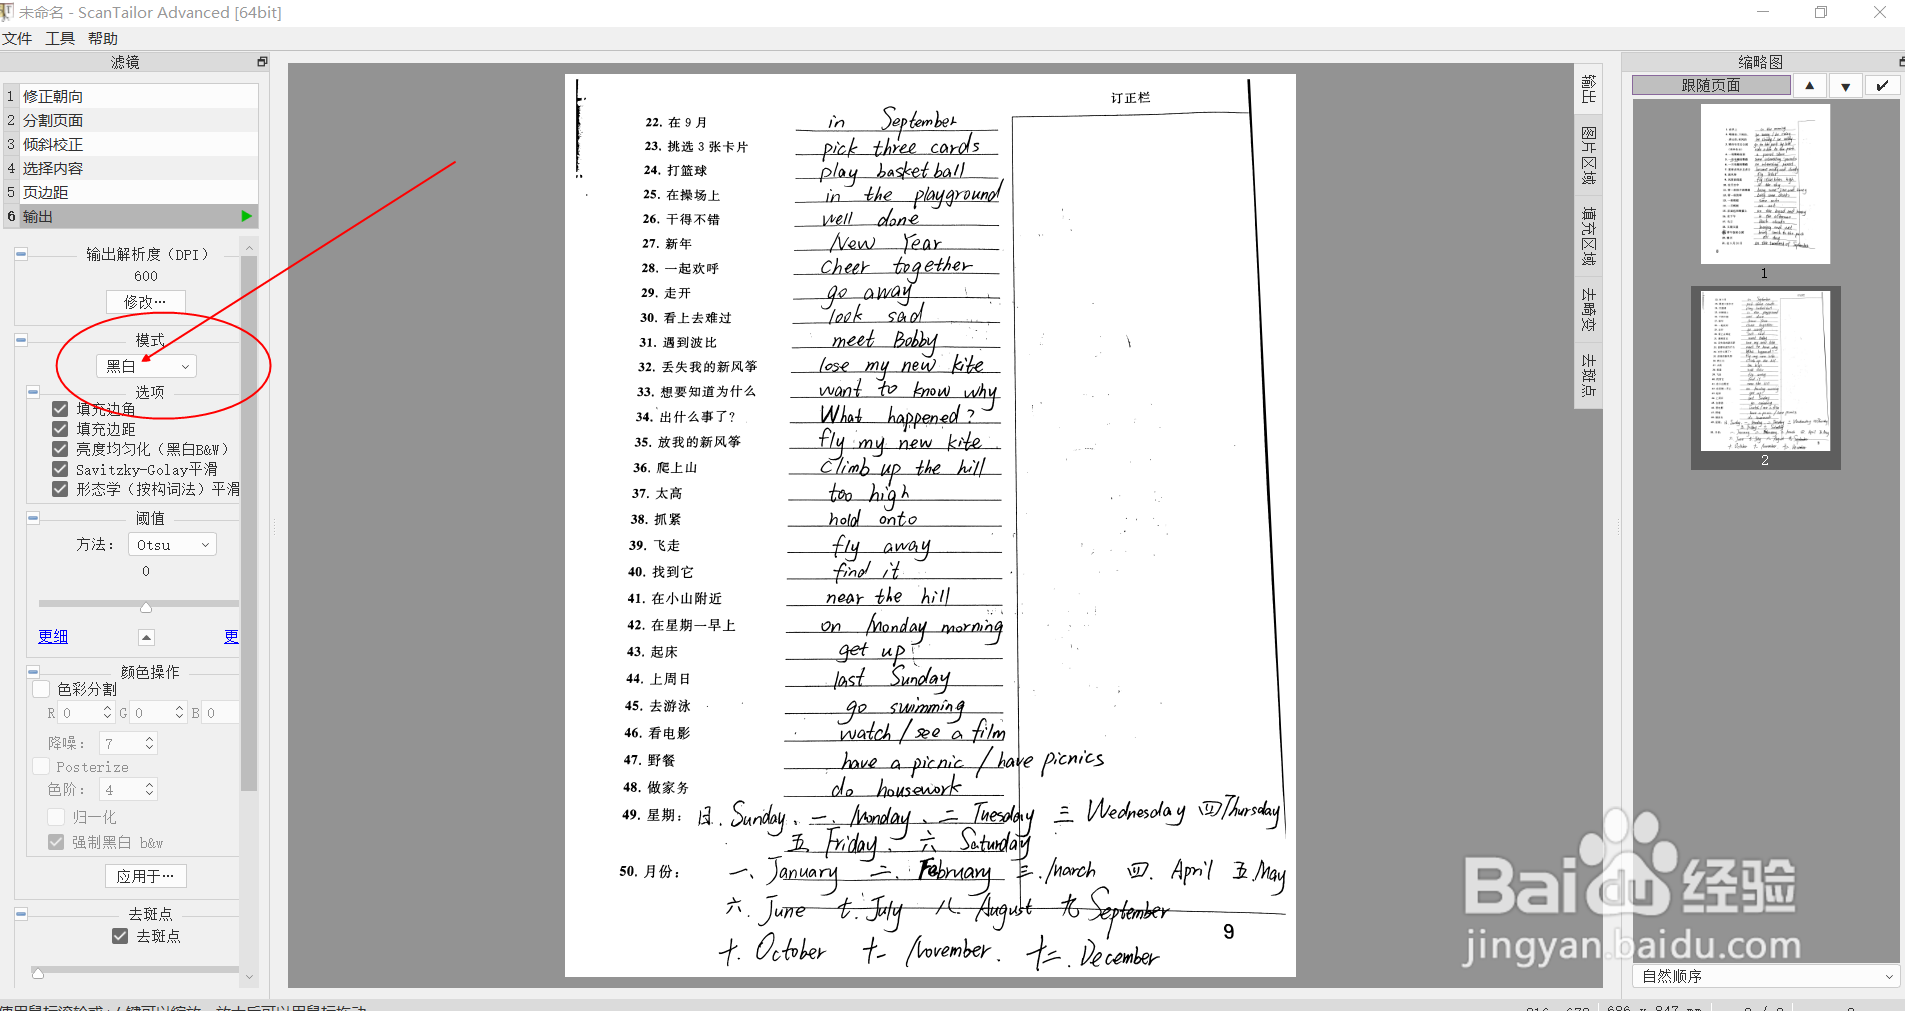 未命名 - ScanTailor Advanced [64bit]
文件 工具 帮助
滤镜
1 修正朝向
2 分割页面
3 倾斜校正
4 选择内容
5 页边距
6 输出
输出解析度（DPI）
600
修改…
模式
黑白
选项
填充边角
填充边距
亮度均匀化（黑白B&W）
Savitzky-Golay平滑
形态学（按构词法）平滑
阈值
方法： Otsu
0
更细 更
颜色操作
色彩分割
R 0 G 0 B 0
降噪： 7
Posterize
色阶： 4
归一化
强制黑白 b&w
应用于…
去斑点
去斑点
订正栏
22. 在 9 月 in September
23. 挑选 3 张卡片 pick three cards
24. 打篮球 play basketball
25. 在操场上 in the playground
26. 干得不错 well done
27. 新年 New Year
28. 一起欢呼 cheer together
29. 走开 go away
30. 看上去难过 look sad
31. 遇到波比 meet Bobby
32. 丢失我的新风筝 lose my new kite
33. 想要知道为什么 want to know why
34. 出什么事了? What happened?
35. 放我的新风筝 fly my new kite
36. 爬上山 climb up the hill
37. 太高 too high
38. 抓紧 hold onto
39. 飞走 fly away
40. 找到它 find it
41. 在小山附近 near the hill
42. 在星期一早上 on Monday morning
43. 起床 get up
44. 上周日 last Sunday
45. 去游泳 go swimming
46. 看电影 watch / see a film
47. 野餐 have a picnic / have picnics
48. 做家务 do housework
49. 星期: 日. Sunday. 一. Monday、二 Tuesday 三 Wednesday 四 Thursday
五 Friday. 六 Saturday
50. 月份: 一、January 二. February 三. March 四. April 五. May
六. June 七. July 八. August 九 September
十. October 十一 November. 十二. December
9
输出
图片区域
填充区域
去畸变
去斑点
缩略图
跟随页面
1
2
自然顺序
Baidu 经验
jingyan.baidu.com